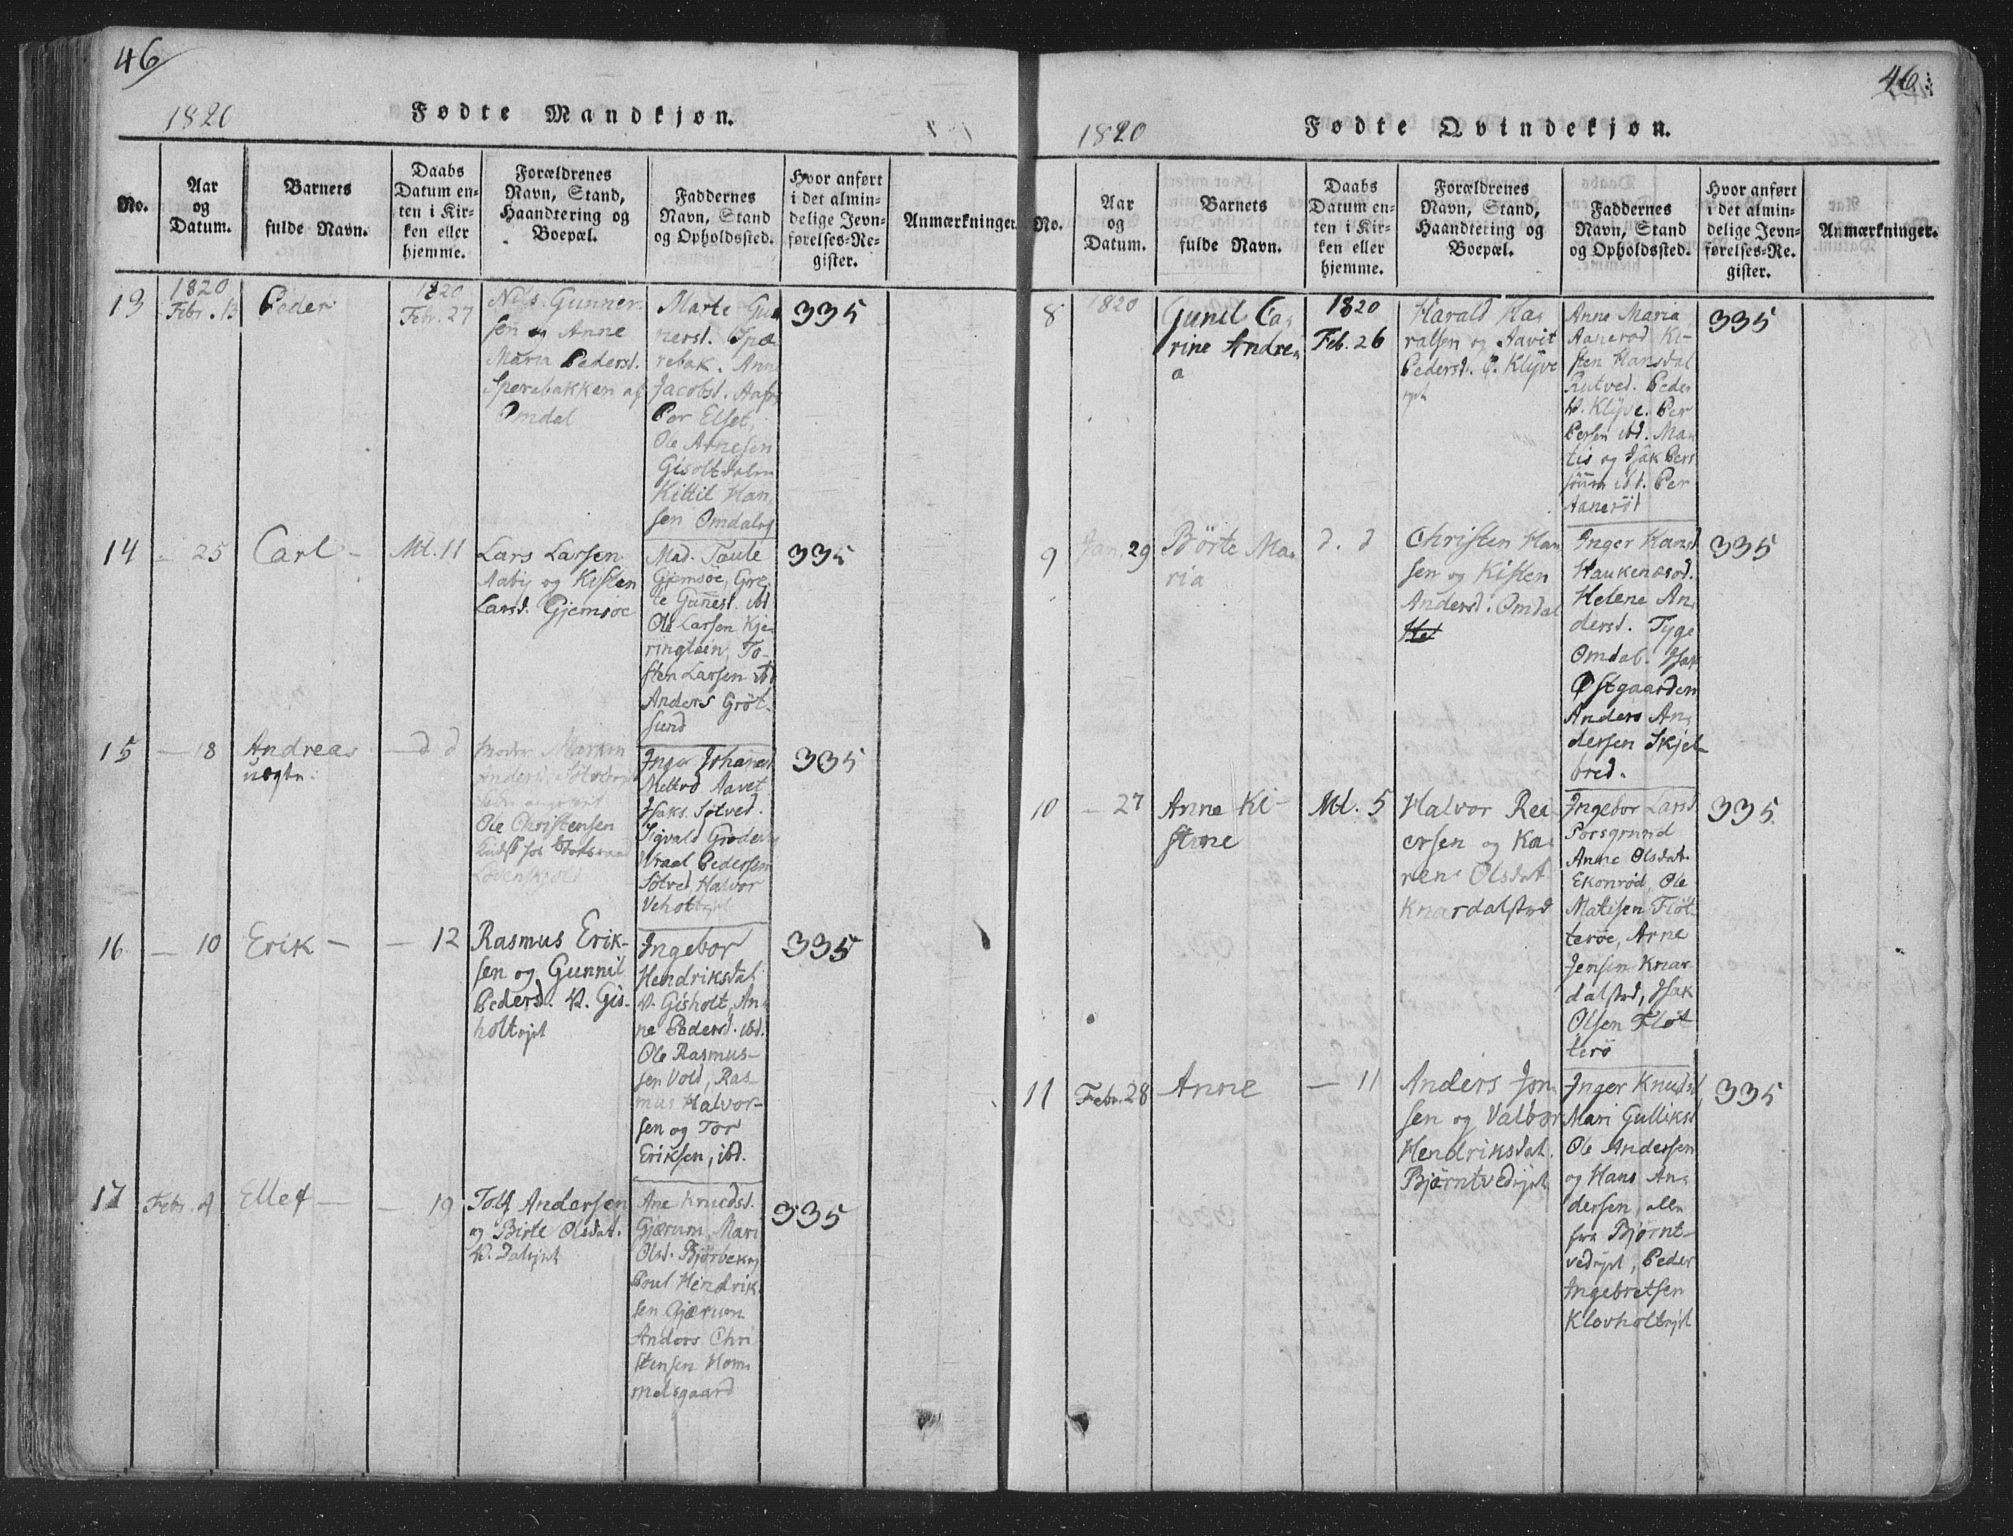 46
1820
Fødte Mandkjøn.
No.
Aar
og
Datum.
Barnets
fulde Navn.
Daabs
Datum en-
ten i Kir-
ken eller
hjemme.
Forældrenes
Navn, Stand,
Haandtering og
Boepæl.
Faddernes
Navn, Stand
og Opholdssted.
Hvor anført
i det almin-
delige Jevn-
førelses-Re-
gister.
Anmærkninger.
13
1820
Febr. 13
Peder
1820
Febr. 27
Nils Gunner
sen og Anne
Maria Pedersd.
Sperebakken af
Omdal
Marte Gu
nersd. Spæ
rebak. Ann
Jacobsd.
Per Elset,
Ole Arnesen
Gisoltdalen
Kittil Han
sen Omdal
335
14
- 25
Carl -
Mt. 11
Lars Larsen
Aaby og Kisten
Larsd. Gjemsøe
Mad. Taule
Gjemsøe, Gre-
te Gunnesd. ibd
Ole Larsen Kje
ringtøen, To-
sten Larsen ibd
Anders Grøt-
sund
335
15
- 18
Andreas
uægte.
- d d
Moder Maren
Anders
Ole Christensen
Løvenskjold
Inger Johanesd
Aavet
Isaks. Søtved.
Sigvald
Wrael Pedersen
Søtved, Halvor
335
16
- 10
Erik -
- 12
Rasmus Erik-
sen og Gunnil
Pedersd. V. Gis-
holtejet
Ingebor
Hendriksdat
V. Gisholt, An-
ne Pedersd. ibd.
Ole Rasmus-
sen Vold, Ras-
mus Halvor-
sen og Tor
Eriksen, ibd.
335
17
Febr. 4
Ellef -
- 19
Tolf Andersen
og Birte Olsdat.
V. Dalejet
Ane Knudsd.
Gjærum, Mari
Olsd. Bjørbek
Poul Hendrik
sen Gjærum
Anders Chri
stensen Hom
melsgaard
335
46
1820
Fødte Qvindekjøn.
No.
Aar
og
Datum.
Barnets
fulde Navn.
Daabs
Datum en-
ten i Kir-
ken eller
hjemme.
Forældrenes
Navn, Stand,
Haandtering og
Boepæl.
Faddernes
Navn, Stand
og Opholdssted.
Hvor anført
i det almin-
delige Jevn-
førelses-Re-
gister.
Anmærkninger.
8
1820
Gunil Ca-
rine Andre
a
1820
Feb. 26
Harald Ha
ralsen og Aavit
Pedersd. Ø. Klyve
ejet
Anne Maria
Aanerød Ki-
sten Hansdal
Rutved. Peder
V. Klyve. Per
Persen ibd. Ma
tis og Isak Pers
sønner ibd. Per
Aanerød
335
9
Jan. 29
Børte Ma
ria
d. d
Christen Han
sen og Kisten
Andersd. Omdal
Inger Hansd
Haukenæsød.
Helene An-
dersd. Tyge
Omdal. Isak
Østgaarden
Anders An-
dersen Skjel-
bred.
335
10
- 27
Anne Ki-
stine
Mt. 5
Halvor Rea
ersen og Ka
ren Olsdat
Knardalstød
Ingebor Larsd
Porsgrund
Anne Olsdat.
Ekonrød, Ole
Matisen Fløt
terøe, Arne
Jensen Knar
dalstød, Isak
Olsen Fløt
terø
335
11
Febr. 28
Anne
- 11
Anders Jon
sen og Valbor
Hendriksdat.
Bjørntvedejet
Inger Knudsd
Mari Gulliksd
Ole Andersen
og Hans An-
dersen, alle
fra Bjørnt-
vedejet, Peder
Ingebretsen
Klovholtejet
335